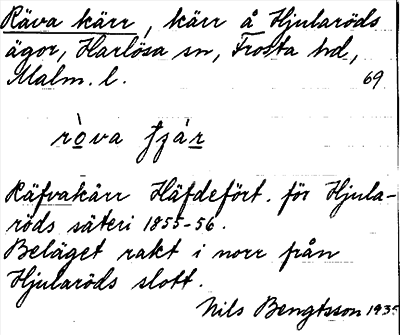 Räva kärr, kärr å Hjularöds
ägor, Harlösa sn, Frosta hd,
Malm. l. 69
Räfvakärr Häfdefört. för Hjula-
röds säteri 1855-56.
Beläget rakt i norr från
Hjularöds slott.
Nils Bengtsson 1935